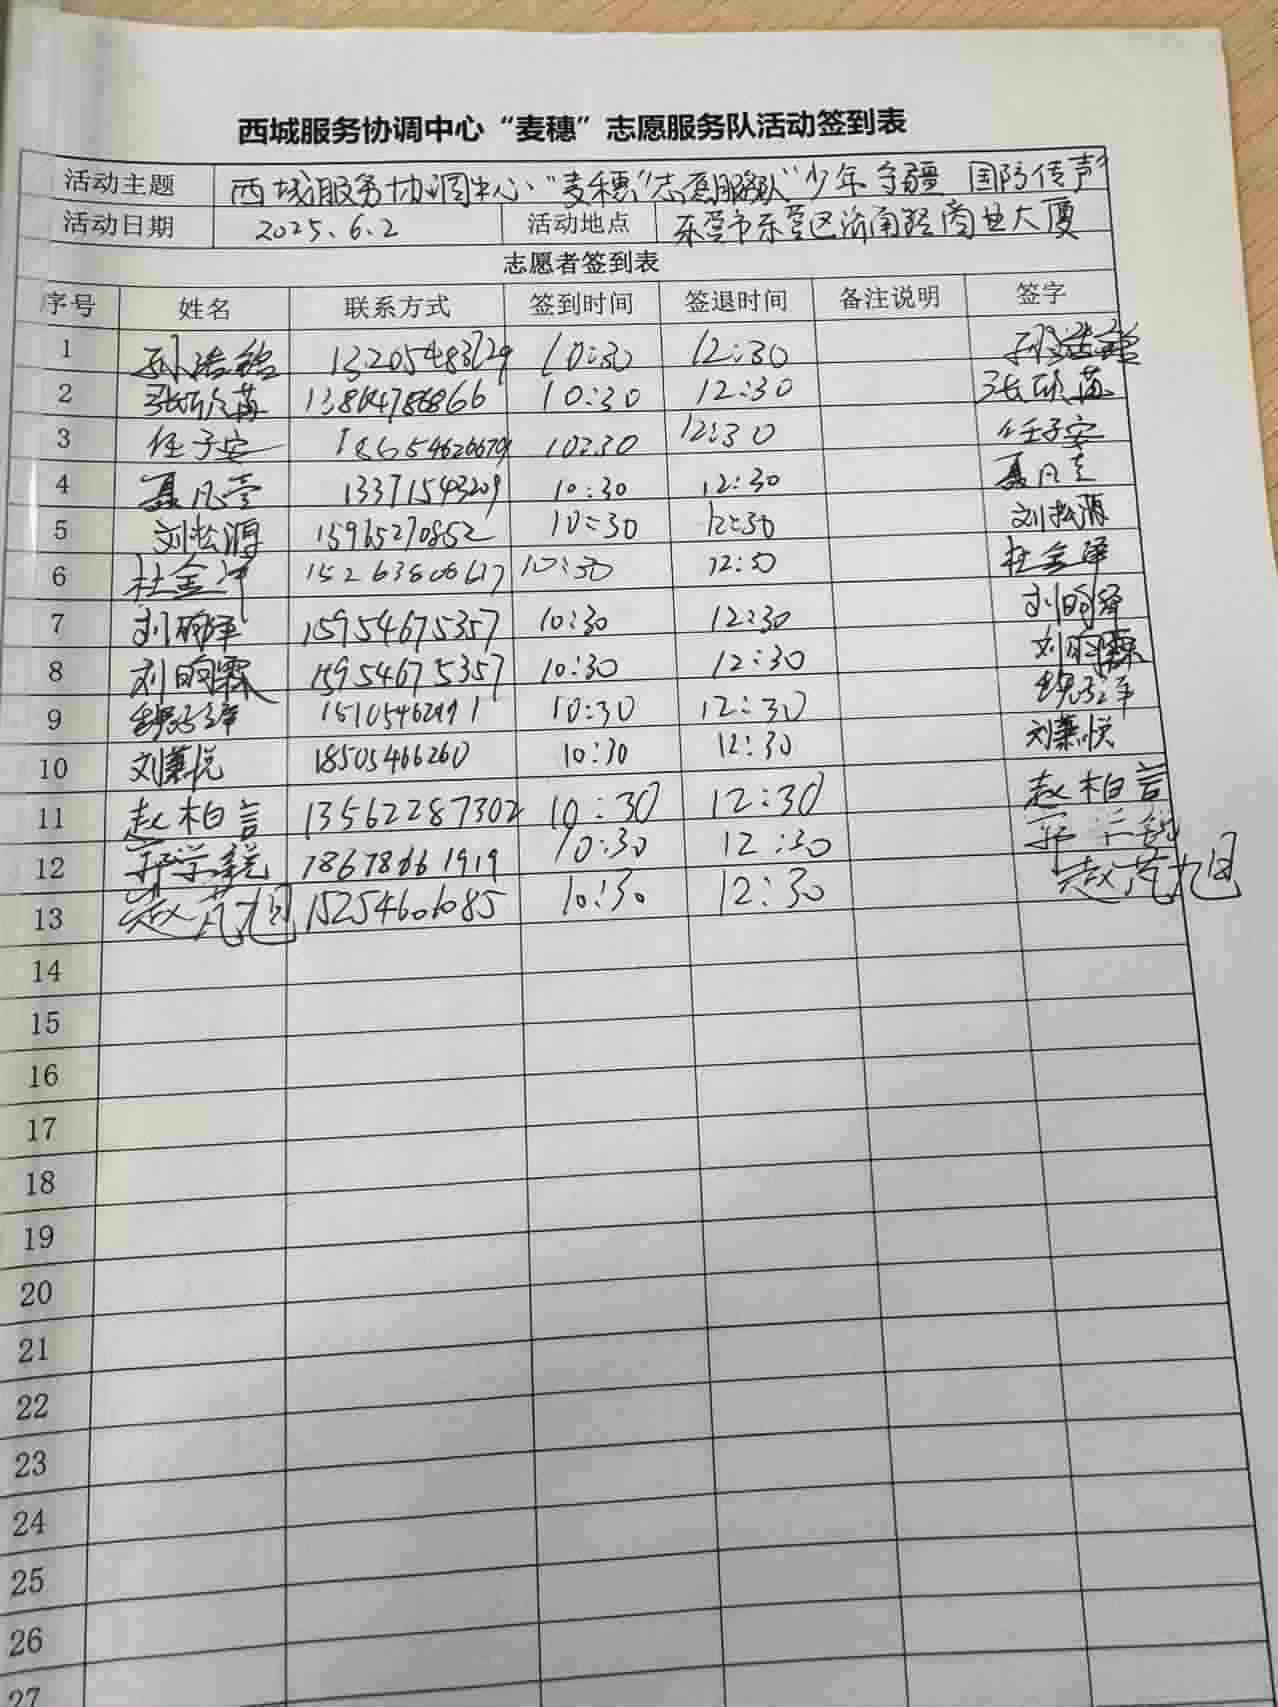 西城服务协调中心“麦穗”志愿服务队活动签到表
活动主题 西城服务协调中心“麦穗”志愿服务队“少年守疆 国防传声”
活动日期 2025.6.2 活动地点 东营市东营区济南路商业大厦
志愿者签到表
序号 姓名 联系方式 签到时间 签退时间 备注说明 签字
1 孙浩铭 13205483729 10:30 12:30 孙浩铭
2 13864786866 10:30 12:30
3 任子安 18654620679 10:30 12:30 任子安
4 聂凡壹 13371543209 10:30 12:30 聂凡壹
5 刘松源 15965270852 10:30 12:30 刘松源
6 杜金泽 15263806617 10:30 12:30 杜金泽
7 刘昫泽 15954675357 10:30 12:30 刘昫泽
8 刘昫霖 15954675357 10:30 12:30 刘昫霖
9 10:30 12:30
10 刘萧悦 18505466260 10:30 12:30 刘萧悦
11 赵柏言 13562287302 10:30 12:30 赵柏言
12 郭学锐 18678661919 10:30 12:30 郭学锐
13 赵芃旭 15254606085 10:30 12:30 赵芃旭
14
15
16
17
18
19
20
21
22
23
24
25
26
27